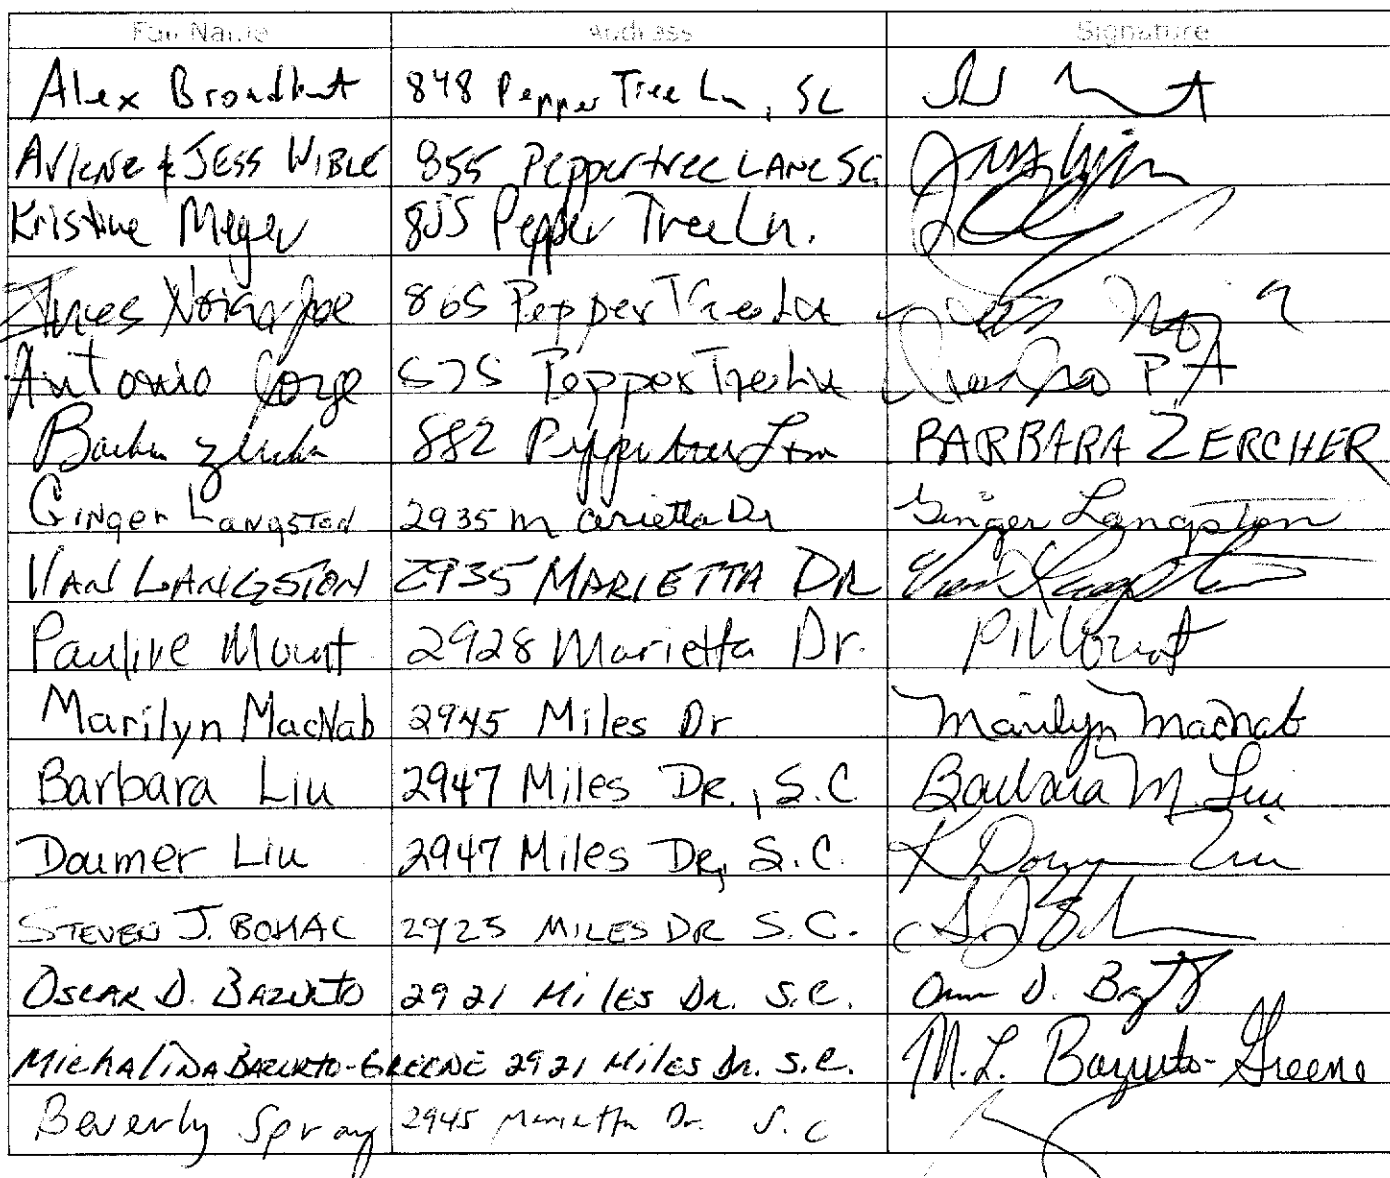 Full Name Address Signature
Alex Broadhurst 848 Pepper Tree Ln, SC
Arlene & JESS WIBLE 855 Peppertree LANE SC
Kristine Meyer 855 Pepper Tree Ln.
865 Pepper Tree Ln
Antonio Jorge 875 Pepper Tree Ln
882 Peppertree BARBARA ZERCHER
Ginger Langston 2935 Marietta Dr Ginger Langston
VAN LANGSTON 2935 MARIETTA DR Van Langston
Pauline Mount 2928 Marietta Dr. P Mount
Marilyn MacNab 2945 Miles Dr Marilyn MacNab
Barbara Liu 2947 Miles DR., S.C. Barbara M. Liu
Doumer Liu 2947 Miles DR, S.C. K Doumer Liu
STEVEN J. BOHAC 2925 MILES DR S.C.
OSCAR D. BAZURTO 2921 Miles Dr. S.C.
MichaliNA BAZURTO-GREENE 2921 Miles Dr. S.C. M.L. Bazurto-Greene
Beverly Spray 2945 Marietta Dr. S.C